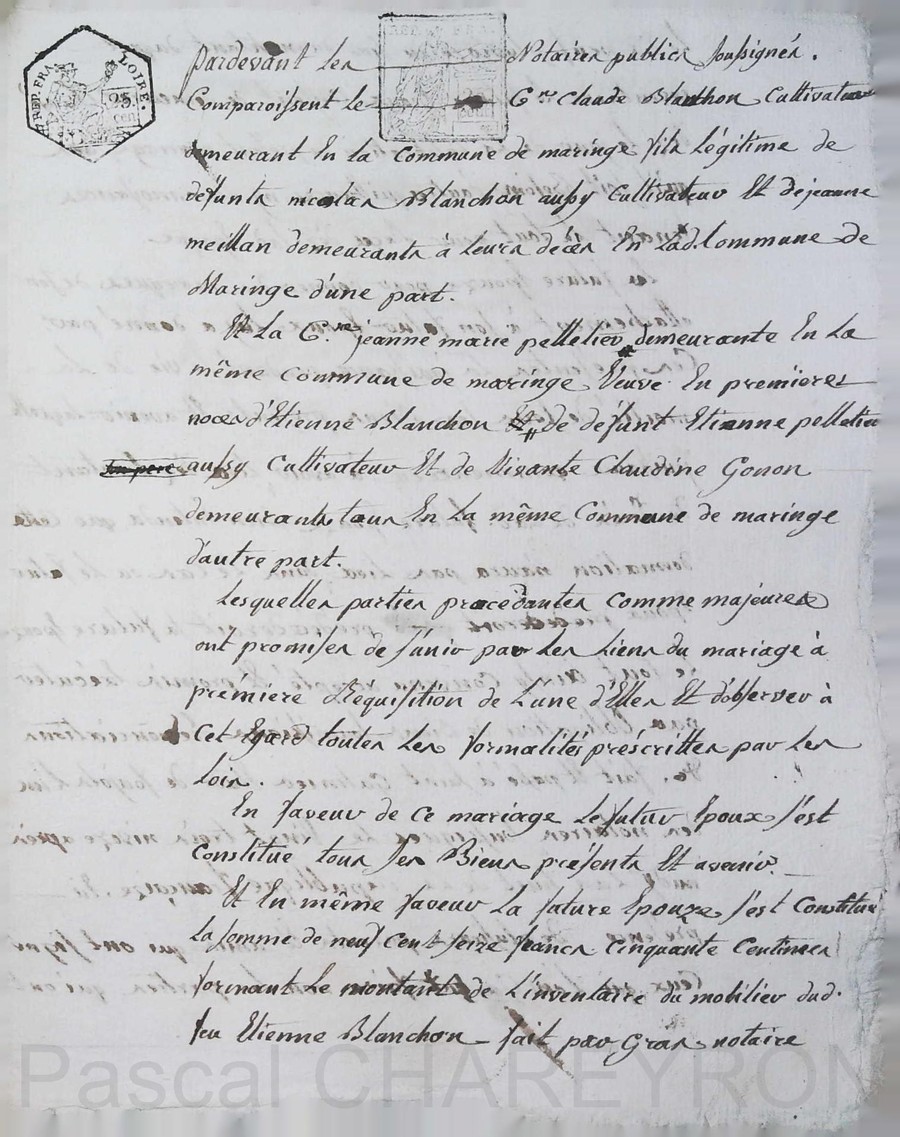 REP. FRA. LOIRE.
25 cen
Pardevant Les Notaires publics soussignés.
Comparoissent Le C.en Claude Blanchon Cultivateur
demeurant En La Commune de maringe fils Légitime de
défunts nicolas Blanchon aussy Cultivateur Et de jeanne
meillan demeurants à Leurs décès En Lad. Commune de
Maringe d'une part.
Et La C.ne jeanne marie pelletier demeurante En La
même Commune de maringe Veuve En premieres
noces d'Etienne Blanchon Et de défunt Etienne pelletier
son pere aussy Cultivateur Et de Vivante Claudine Gonon
demeurants tous En La même Commune de maringe
d'autre part.
Lesquelles parties procédantes comme majeures
ont promises de s'unir par Les Liens du mariage à
première Réquisition de L'une d'Elles Et d'observer à
Cet Egard toutes Les formalités préscrittes par Les
Loix.
En faveur de ce mariage Le futur Epoux s'est
Constitué tous ses Biens présents Et avenir.
Et En même faveur La future Epouze s'est Constitué
La somme de neuf Cent seize francs Cinquante Centimes
formant Le montant de L'inventaire du mobilier dud.
feu Etienne Blanchon fait par Gras notaire
Pascal CHAREYRON